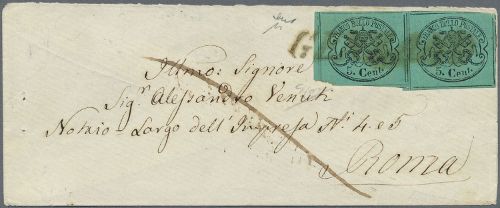 FRANCO BOLLO POSTALE
5. Cent.
FRANCO BOLLO POSTALE
5. Cent.
Illmo: Signore
Sigr Alessandro Venuti
Notaio - Largo dell'Impresa Ni 4 e 5
Roma